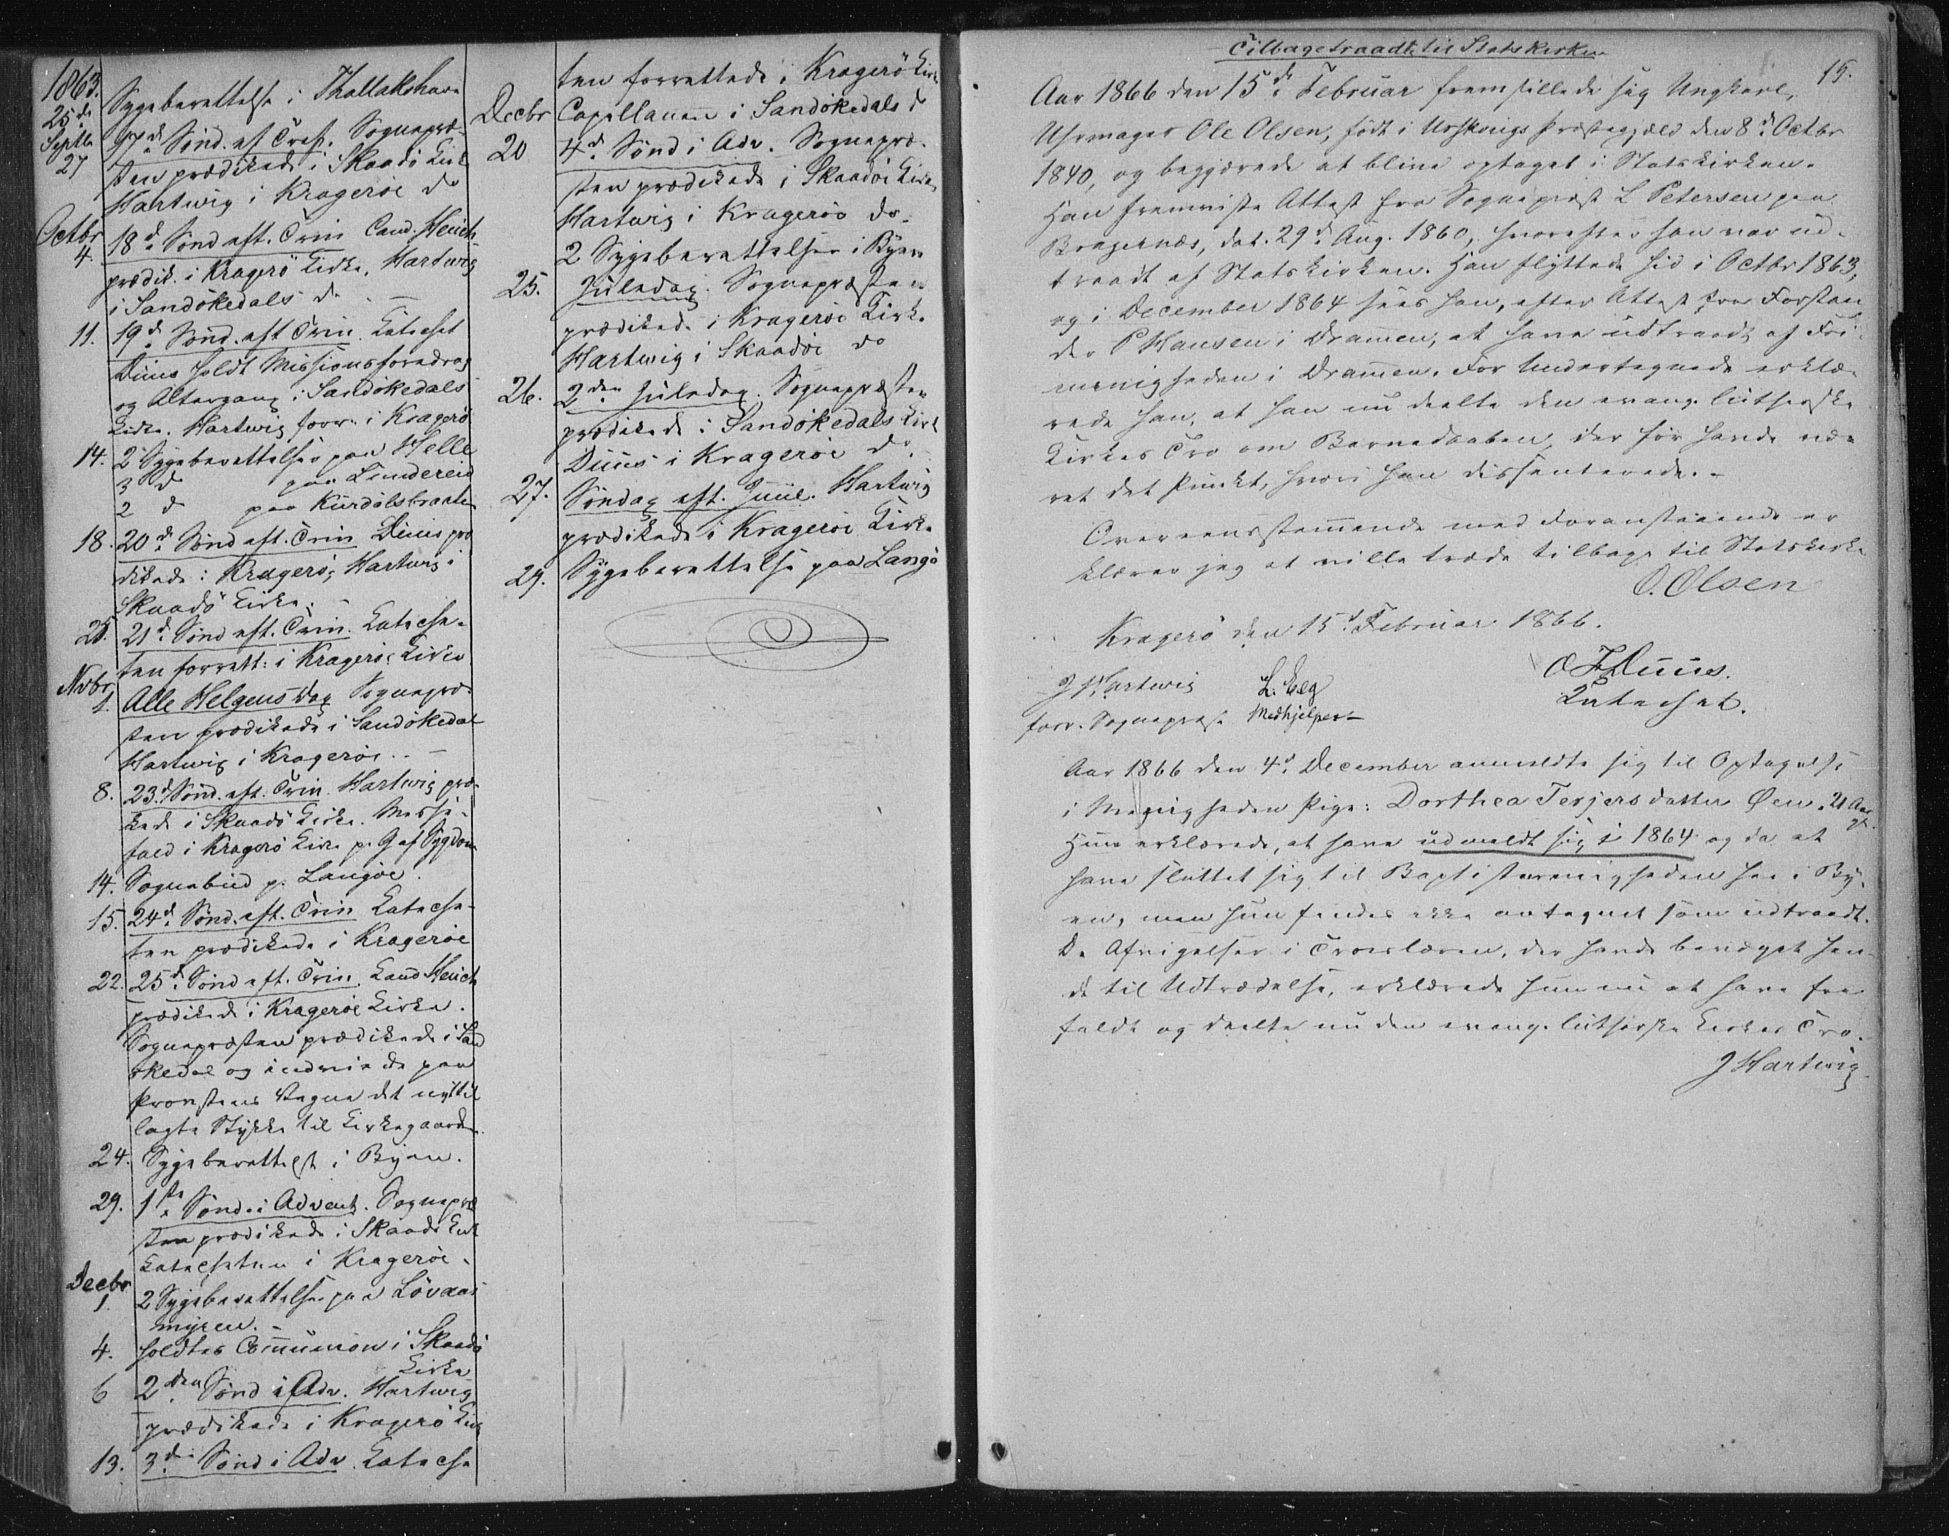 1863.
25de Septbr Sygeberettelse i Thallakshavn
27 17de Sønd. ef. Tref. Sognepræ-
sten prædikede i Skaadö Kirk
Hartwig i Kragerøe do
Octbr
4. 18de Sønd eft. Trin Cand. Heuch
prædik. i Kragerö Kirke, Hartwig
i Sandökedals do. —
11. 19de Sønd. eft Trin. Katechet
Duus holdt Missionsforedrag
og Altergang i Sandökedals
Kirke. Hartwig forr. i Kragerö
14. 2 Sygeberettelser paa Helle
3 do paa Lundereid
2 do paa Kurdölsbraaten
18. 20de Sønd eft. Trin Duus præ
dikede i Kragerö, Hartwig i
Skaadö Kirke. —
25. 21de Sønd eft. Trin. Kateche-
ten forrett: i Kragerøe Kirke
Nvbr
1. Alle Helgens Dag Sognepræ-
sten prædikede i Sandökedal
Hartwig i Kragerøe. . —
8. 23de Sønd. eft. Trin. Hartwig præ-
kede i Skaadö Kirke. Messe-
fald i Kragerö Kirke p. G af Sygdom
14. Sognebud p. Langöe.
15. 24de Sønd. eft. Trin Kateche-
ten prædikede i Kragerøe
22. 25de Sønd eft. Trin. Cand Heuch
prædikede i Kragerøe Kirke.
Sognepræsten prædikede i San
økedal og indviede paa
Provstens Vegne det nytil
lagte Stykke til Kirkegaarden.
24. Sygeberettelse i Byen.
29. 1ste Sønd. i Advent. Sognepræ
sten prædikede i Skaadö Kirk
Katecheten i Kragerøe.
Decbr
1. 2 Sygeberettelser paa Lövaas
myren. —
4. holdtes Communion i Skaadö
Kirke
6 2den Sønd i Adv. Hartwig
prædikede i Kragerö Kirk
13. 3die Sønd i Adv. Kateche
ten forrettede i Kragerö Kirke
Decbr Capellanen i Sandökedals do
20 4de Sønd i Adv. Sognepræ-
sten prædikede i Skaadöe Kirke,
Hartwig i Kragerøe do.
2 Sygeberettelser i Byen
25. Juledag. Sognepræsten
prædikede i Kragerøe Kirke
Hartwig i Skaadöe do
26. 2den Juledag. Sognepræsten
prædikede i Sandökedals Kirk
Duus i Kragerøe do.
27. Søndag eft. Juul. Hartwig
prædikede i Kragerøe Kirke
29. Sygeberettelse paa Langö
Tilbagetraadt til Statskirken
15.
Aar 1866 den 15de Februar fremstillede sig Ungkarl,
Uhrmager Ole Olsen, født i Urskougs Præstegjeld den 8de Octbr
1840, og begjærede at blive optaget i Statskirken.
Han fremviste Attest fra Sognepræst L Petersen paa
Bragernæs, dat. 29de Aug. 1860, hvorefter han var ud-
traadt af Statskirken. Han flyttede hid i Octbr 1863,
og i December 1864 sees han, efter Attest fra Forstan
der P Hansen i Drammen, at have udtraadt af Fri-
menigheden i Drammen. For Undertegnede erklæ-
rede han, at han nu deelte den evang. lutherske
Kirkes Tro om Barnedaaben, der før havde væ-
ret det Punkt, hvori han dissenterede. –
Overeensstemmende med Foranstaaende er
klærer jeg at ville træde tilbage til Statskirke
O. Olsen
Kragerö den 15de Februar 1866.
J Hartwig
forr. Sognepræst
L. Eeg
Medhjelper
O F Duus.
Katechet.
Aar 1866 den 4de December anmeldte sig til Optagelse
i Menigheden Pige: Dorthea Terjersdatter Øen. 21 Aar
gl.
Hun erklærede, at have udmeldt sig i 1864 og da at
have sluttet sig til Baptistmenigheden her i By-
en, men hun findes ikke antegnet som udtraadt.
De Afvigelser i Troeslæren, der havde bevæget hen-
de til Udtrædelse, erklærede hun nu at have fra
faldt og deelte nu den evang. lutherske Kirkes Tro.
J Hartwig